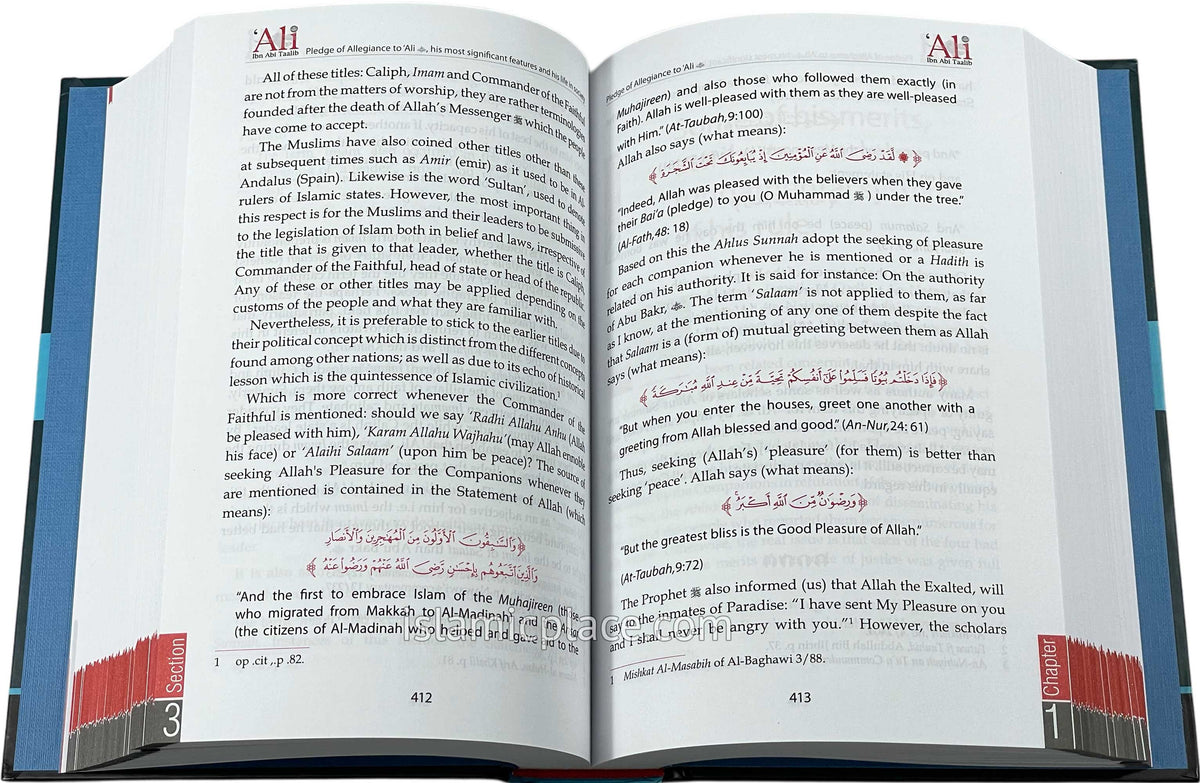 ‘Ali
Ibn Abi Taalib
Pledge of Allegiance to ‘Ali ﷺ, his most significant features and his life in society
All of these titles: Caliph, Imam and Commander of the Faithful
are not from the matters of worship, they are rather terminologies
founded after the death of Allah’s Messenger ﷺ which the people
have come to accept.
The Muslims have also coined other titles other than these
at subsequent times such as Amir (emir) as it used to be in Al-
Andalus (Spain). Likewise is the word ‘Sultan’, used to denote
rulers of Islamic states. However, the most important thing in
this respect is for the Muslims and their leaders to be submissive
to the legislation of Islam both in belief and laws, irrespective of
the title that is given to that leader, whether the title is Caliph,
Commander of the Faithful, head of state or head of the republic.
Any of these or other titles may be applied depending on the
customs of the people and what they are familiar with.
Nevertheless, it is preferable to stick to the earlier titles due to
their political concept which is distinct from the different concepts
found among other nations; as well as due to its echo of historical
lesson which is the quintessence of Islamic civilization.1
Which is more correct whenever the Commander of the
Faithful is mentioned: should we say ‘Radhi Allahu Anhu (Allah
be pleased with him), ‘Karam Allahu Wajhahu’ (may Allah ennoble
his face) or ‘Alaihi Salaam’ (upon him be peace)? The source of
seeking Allah's Pleasure for the Companions whenever they
are mentioned is contained in the Statement of Allah (which
means):
﴿وَالسَّٰبِقُونَ الْأَوَّلُونَ مِنَ الْمُهَٰجِرِينَ وَالْأَنصَارِ
وَالَّذِينَ اتَّبَعُوهُم بِإِحْسَٰنٍ رَّضِىَ اللَّهُ عَنْهُمْ وَرَضُوا عَنْهُ﴾
“And the first to embrace Islam of the Muhajireen (those
who migrated from Makkah to Al-Madinah and the
(the citizens of Al-Madinah who helped and gave aid to the
1 op .cit ,.p .82.
412
Section
3
‘Ali
Ibn Abi Taalib
Pledge of Allegiance to ‘Ali
Muhajireen) and also those who followed them exactly (in
Faith). Allah is well-pleased with them as they are well-pleased
with Him.” (At-Taubah,9:100)
Allah also says (what means):
﴿لَّقَدْ رَضِىَ اللَّهُ عَنِ الْمُؤْمِنِينَ إِذْ يُبَايِعُونَكَ تَحْتَ الشَّجَرَةِ﴾
“Indeed, Allah was pleased with the believers when they gave
their Bai‘a (pledge) to you (O Muhammad ﷺ) under the tree.”
(Al-Fath,48: 18)
Based on this the Ahlus Sunnah adopt the seeking of pleasure
for each companion whenever he is mentioned or a Hadith is
related on his authority. It is said for instance: On the authority
of Abu Bakr, . The term ‘Salaam’ is not applied to them, as far
as I know, at the mentioning of any one of them despite the fact
that Salaam is a (form of) mutual greeting between them as Allah
says (what means):
﴿فَإِذَا دَخَلْتُم بُيُوتًا فَسَلِّمُوا عَلَىٰ أَنفُسِكُمْ تَحِيَّةً مِّنْ عِندِ اللَّهِ مُبَٰرَكَةً﴾
“But when you enter the houses, greet one another with a
greeting from Allah blessed and good.” (An-Nur,24: 61)
Thus, seeking (Allah’s) ‘pleasure’ (for them) is better than
seeking ‘peace’. Allah says (what means):
﴿وَرِضْوَٰنٌ مِّنَ اللَّهِ أَكْبَرُ﴾
“But the greatest bliss is the Good Pleasure of Allah.”
(At-Taubah,9:72)
The Prophet ﷺ also informed (us) that Allah the Exalted, will
say to the inmates of Paradise: “I have sent My Pleasure on you
and I shall never be angry with you.”1 However, the scholars
1 Mishkat Al-Masabih of Al-Baghawi 3/88.
413
Chapter
1
islamicplace.com